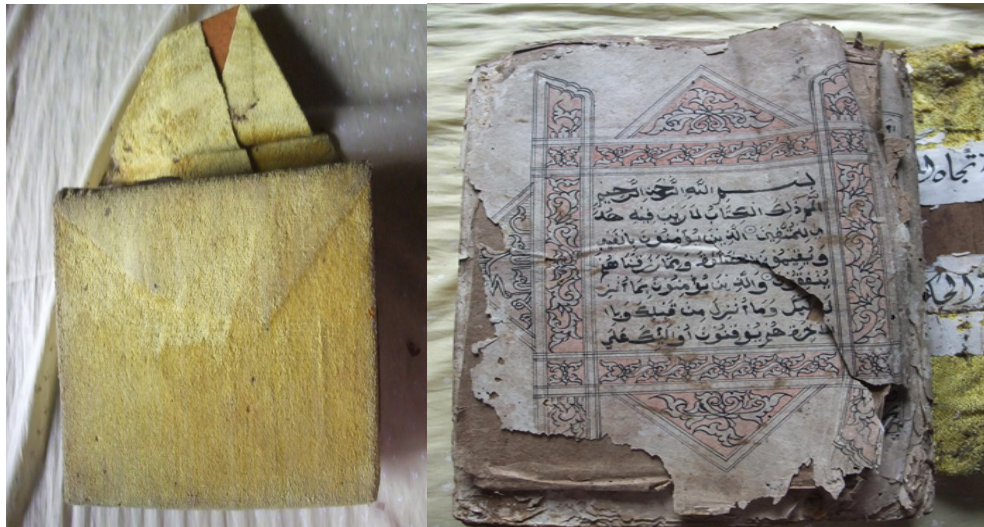 بسم الله الرحمن الرحيم
الم ذلك الكتاب لا ريب فيه هد
للمتقين الذين يؤمنون بالغيب
ويقيمون الصلوة ومما رزقناهم
ينفقون والذين يؤمنون بما أنزل
وما أنزل من قبلك وبا
خرة هم يوقنون أولئك على
تجاه
الحكو